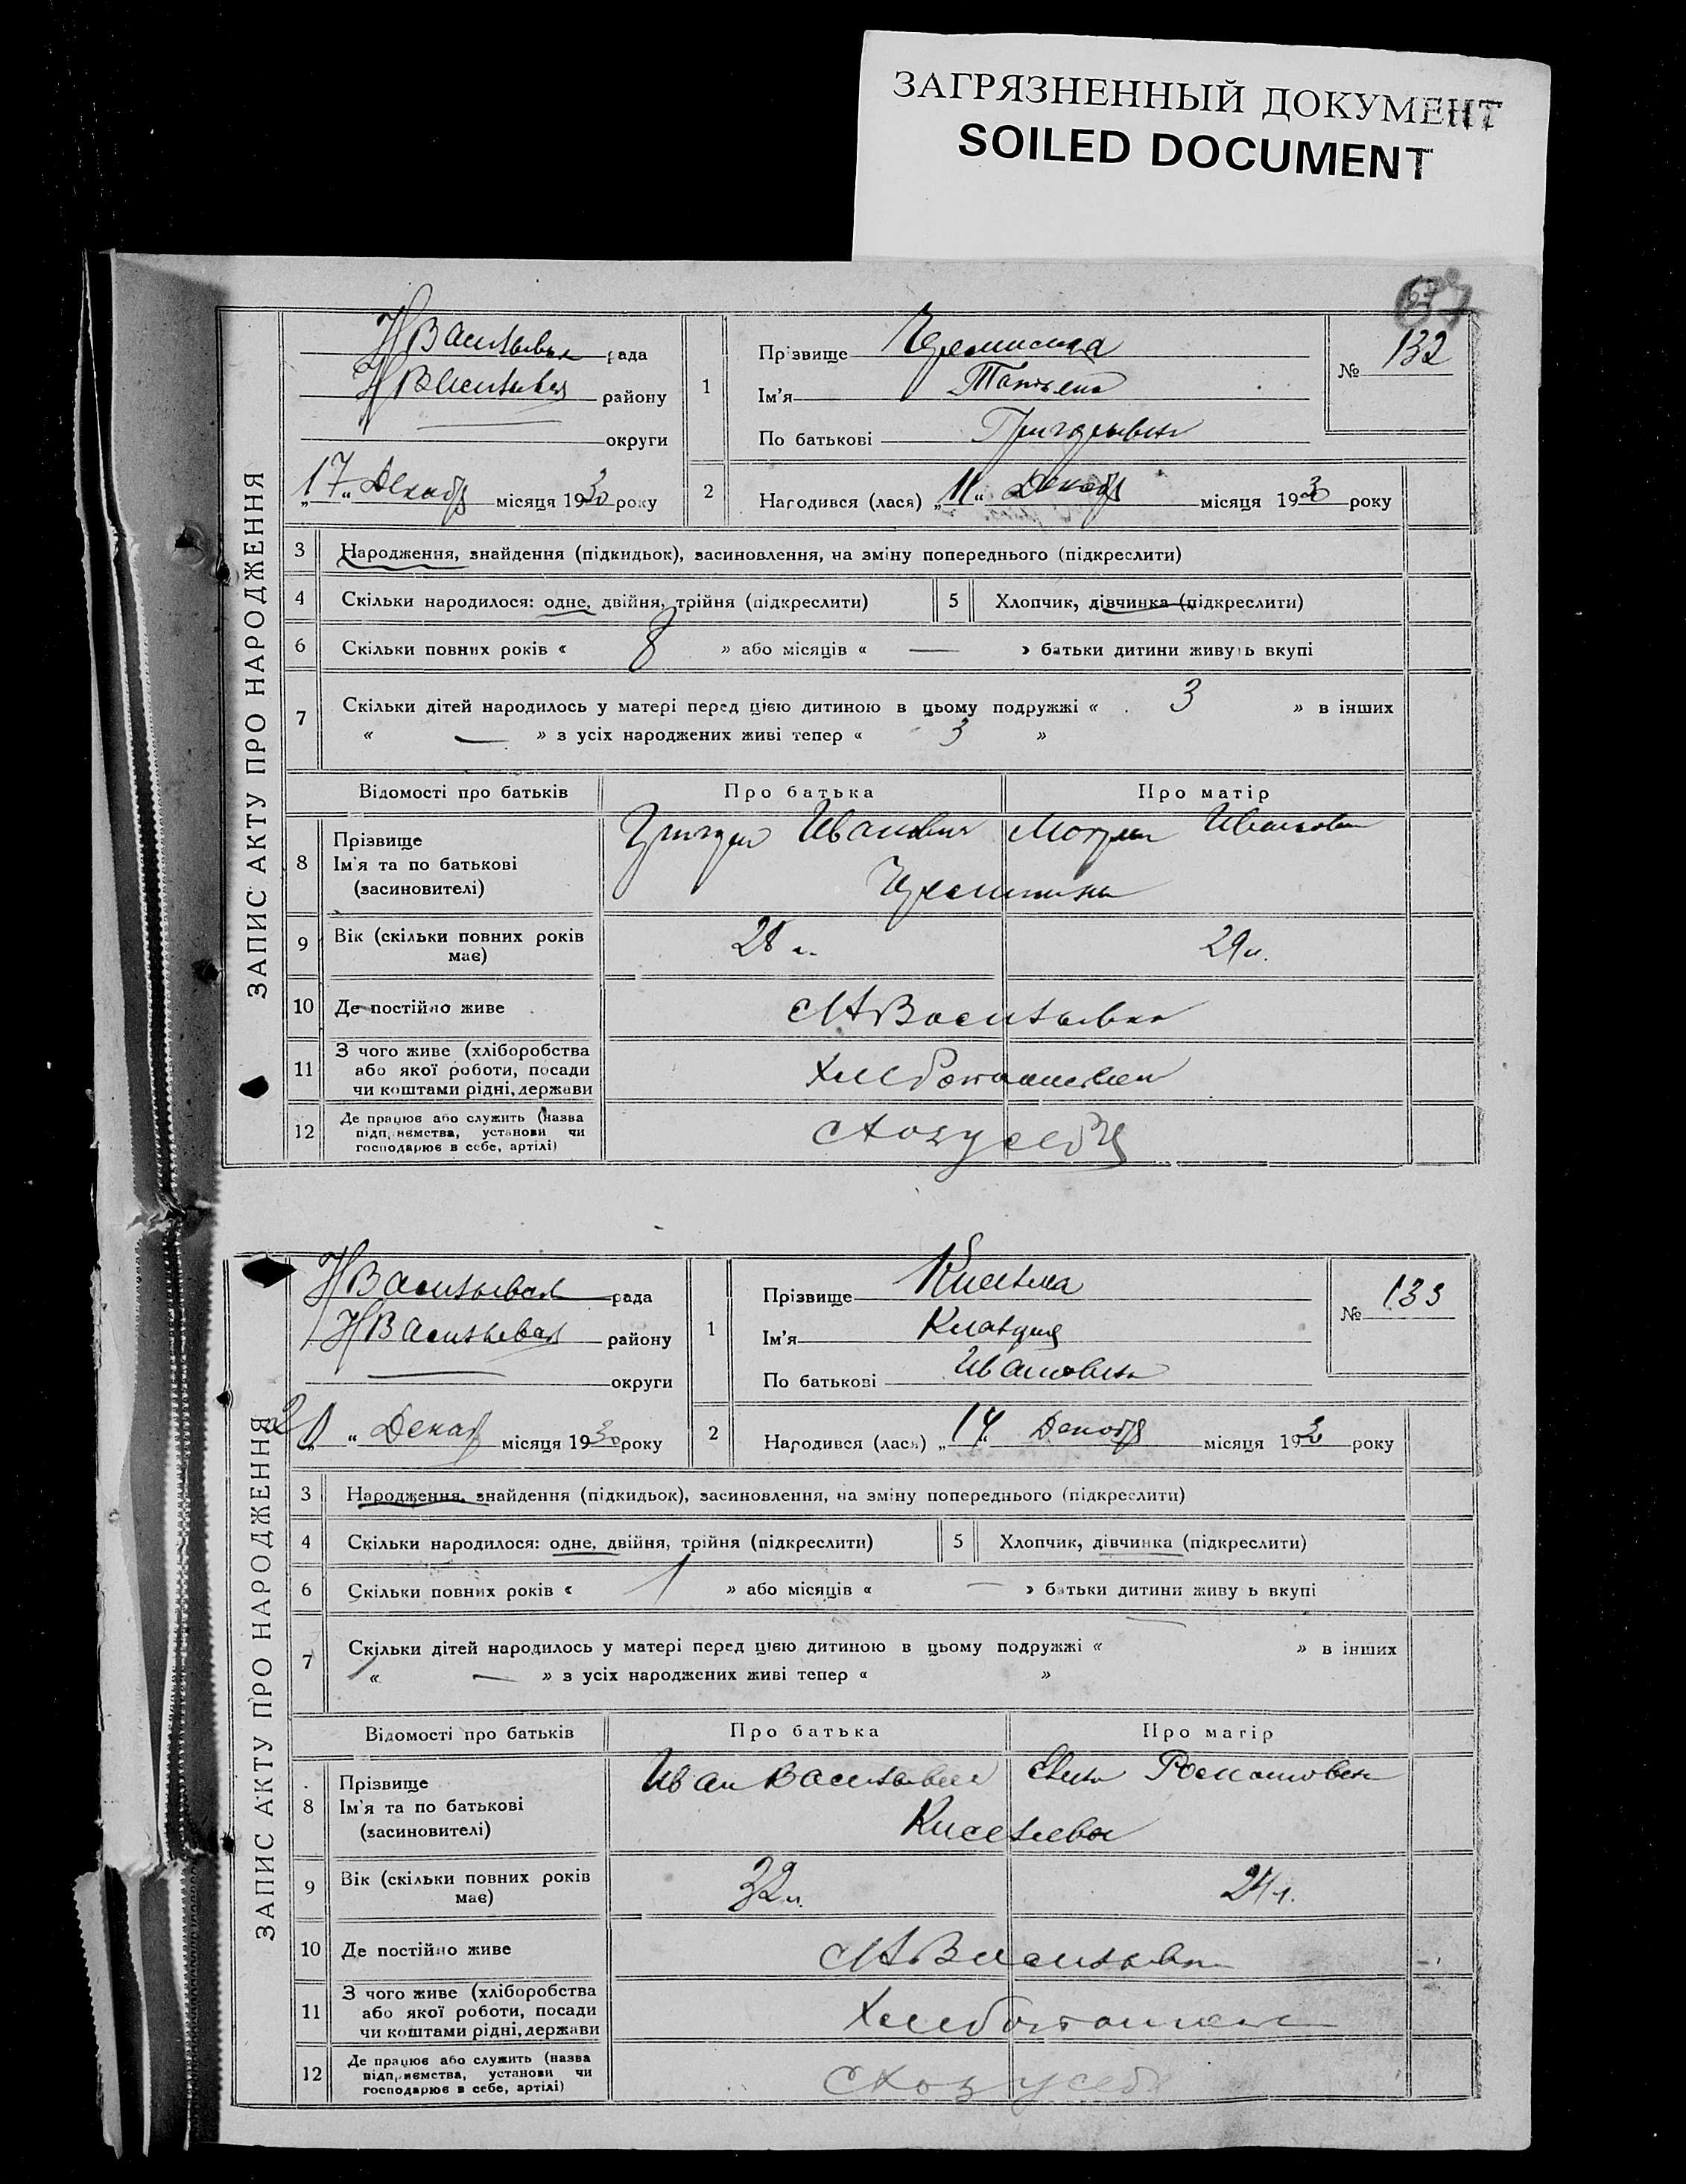 ЗАГРЯЗНЕННЫЙ ДОКУМЕНТ
SOILED DOCUMENT
ЗАПИС АКТУ ПРО НАРОДЖЕННЯ
рада
району
округи
„17“ Декабр місяця 1930 року
1
Прізвище
Ім'я Татьяна
По батькові Григорьевна
№ 132
2 Народився (лася) „11“ Декабр місяця 1930 року
3 Народження, знайдення (підкидьок), засиновлення, на зміну попереднього (підкреслити)
4 Скільки народилося: одне, двійня, трійня (підкреслити)
5 Хлопчик, дівчинка (підкреслити)
6 Скільки повних років « 8 » або місяців « — » батьки дитини живуть вкупі
7 Скільки дітей народилось у матері перед цією дитиною в цьому подружжі « 3 » в інших
« — » з усіх народжених живі тепер « 3 »
Відомості про батьків
Про батька
Про матір
8 Прізвище
Ім'я та по батькові
(засиновителі)
Иванович
Ивановна
9 Вік (скільки повних років
має)
28 л.
29 л.
10 Де постійно живе
11 З чого живе (хліборобства
або якої роботи, посади
чи коштами рідні, держави
12 Де працює або служить (назва
підприємства, установи чи
господарює в себе, артілі)
ЗАПИС АКТУ ПРО НАРОДЖЕННЯ
рада
району
округи
„20“ Декаб місяця 1930 року
1
Прізвище
Ім'я Клавдия
По батькові Ивановна
№ 133
2 Народився (лася) „14“ Декабр місяця 1930 року
3 Народження, знайдення (підкидьок), засиновлення, на зміну попереднього (підкреслити)
4 Скільки народилося: одне, двійня, трійня (підкреслити)
5 Хлопчик, дівчинка (підкреслити)
6 Скільки повних років « 1 » або місяців « — » батьки дитини живу ь вкупі
7 Скільки дітей народилось у матері перед цією дитиною в цьому подружжі « — » в інших
« — » з усіх народжених живі тепер « »
Відомості про батьків
Про батька
Про матір
8 Прізвище
Ім'я та по батькові
(засиновителі)
Иван Васильевич
Киселевы
9 Вік (скільки повних років
має)
32 л.
24 л.
10 Де постійно живе
11 З чого живе (хліборобства
або якої роботи, посади
чи коштами рідні, держави
12 Де працює або служить (назва
підприємства, установи чи
господарює в себе, артілі)